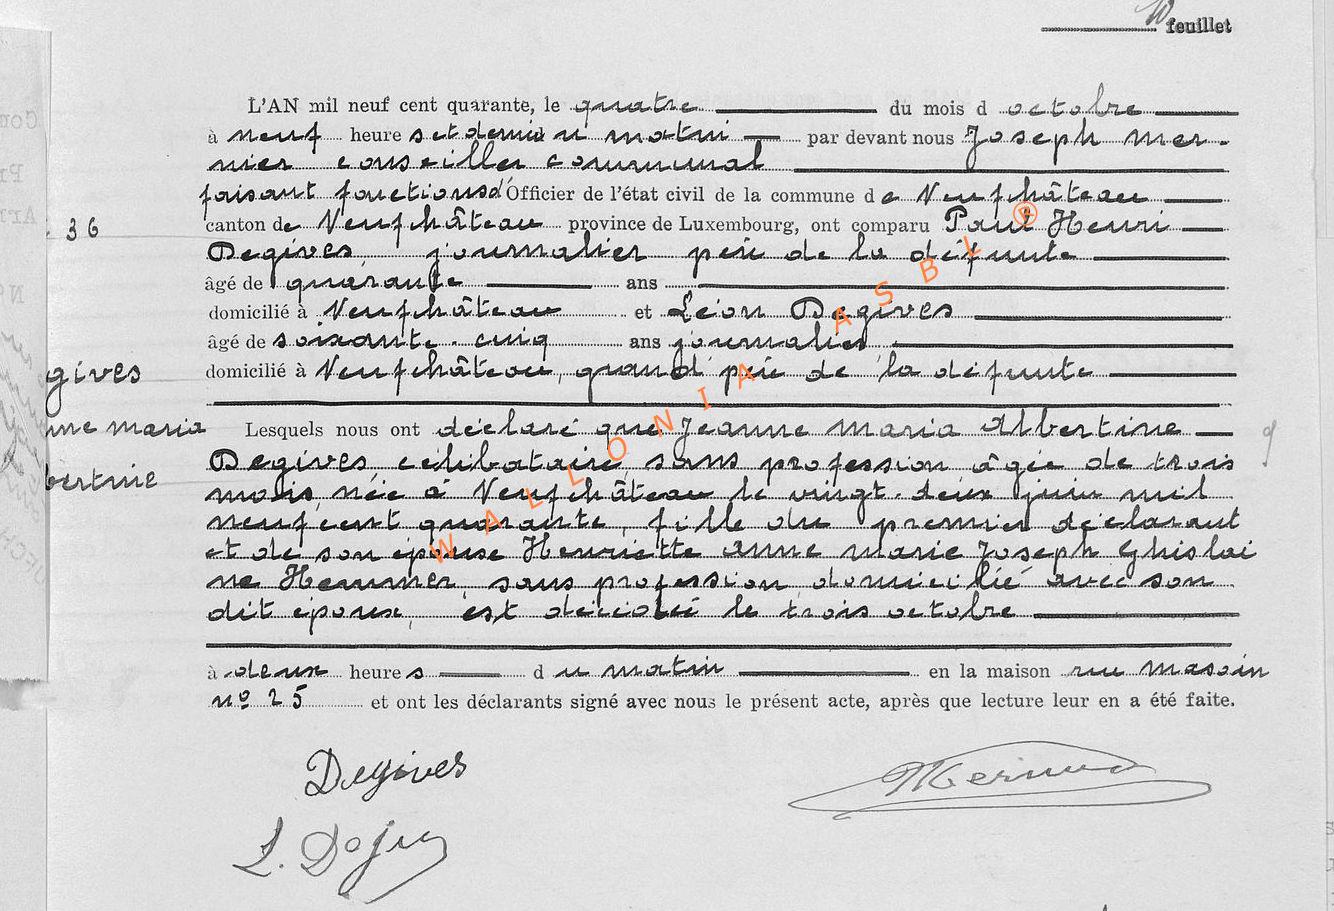 10 feuillet
L'AN mil neuf cent quarante, le quatre du mois d octobre
à neuf heure s et demie u matin par devant nous Joseph Mer-
nier conseiller communal
faisant fonctions d'Officier de l'état civil de la commune de Neufchâteau
canton de Neufchâteau province de Luxembourg, ont comparu Paul Henri
36
Degives, journalier père de la défunte
âgé de quarante ans
domicilié à Neufchâteau et Léon Degives
âgé de soixante-cinq ans journalier
domicilié à Neufchâteau, grand père de la défunte
gives
Lesquels nous ont déclaré que Jeanne Maria Albertine
nne Maria
Degives, célibataire, sans profession âgée de trois
bertine
mois, née à Neufchâteau le vingt-deux juin mil
neuf cent quarante, fille du premier déclarant
et de son épouse Henriette Anne Marie Joseph Ghislai
ne Hemmer, sans profession domiciliée avec son
dit époux, est décédée le trois octobre
à deux heure s d u matin en la maison rue Massin
n° 25 et ont les déclarants signé avec nous le présent acte, après que lecture leur en a été faite.
Degives
Mernier
L. Degives
WALLONIA ASBL ®